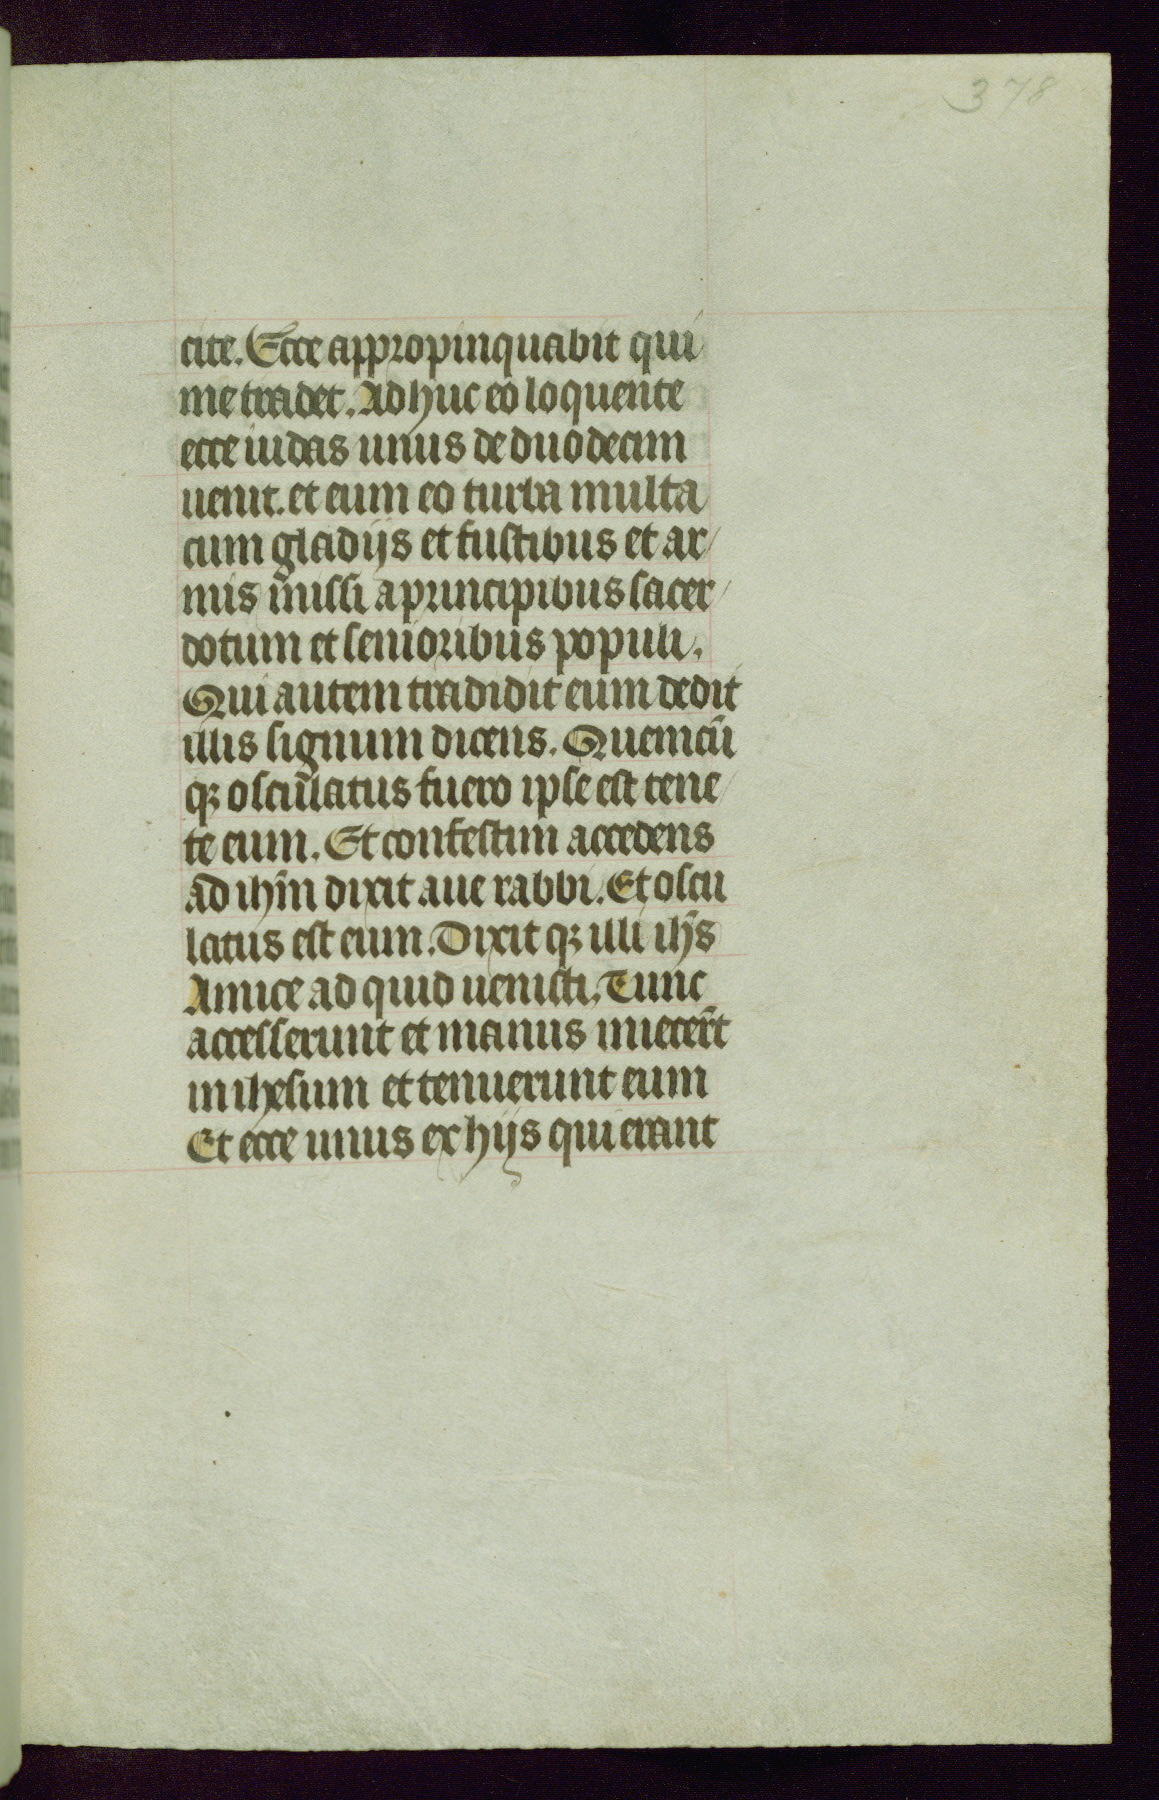 378
cite. Ecce appropinquabit qui
me tradet. Adhuc eo loquente
ecce iudas unus de duodecim
uenit. et cum eo turba multa
cum gladijs et fustibus et ar/
mis missi a principibus sacer/
dotum et senioribus populi.
Qui autem tradidit eum dedit
illis signum dicens. Quemcū
qꝫ osculatus fuero ipse est tene/
te eum. Et confestim accedens
ad ihm̄ dixit aue rabbi. Et oscu
latus est eum. Dixit qꝫ illi ihs̄
Amice ad quid uenisti. Tunc
accesserunt et manus iniecer̄t
in ihesum et tenuerunt eum
Et ecce unus ex hijs qui erant